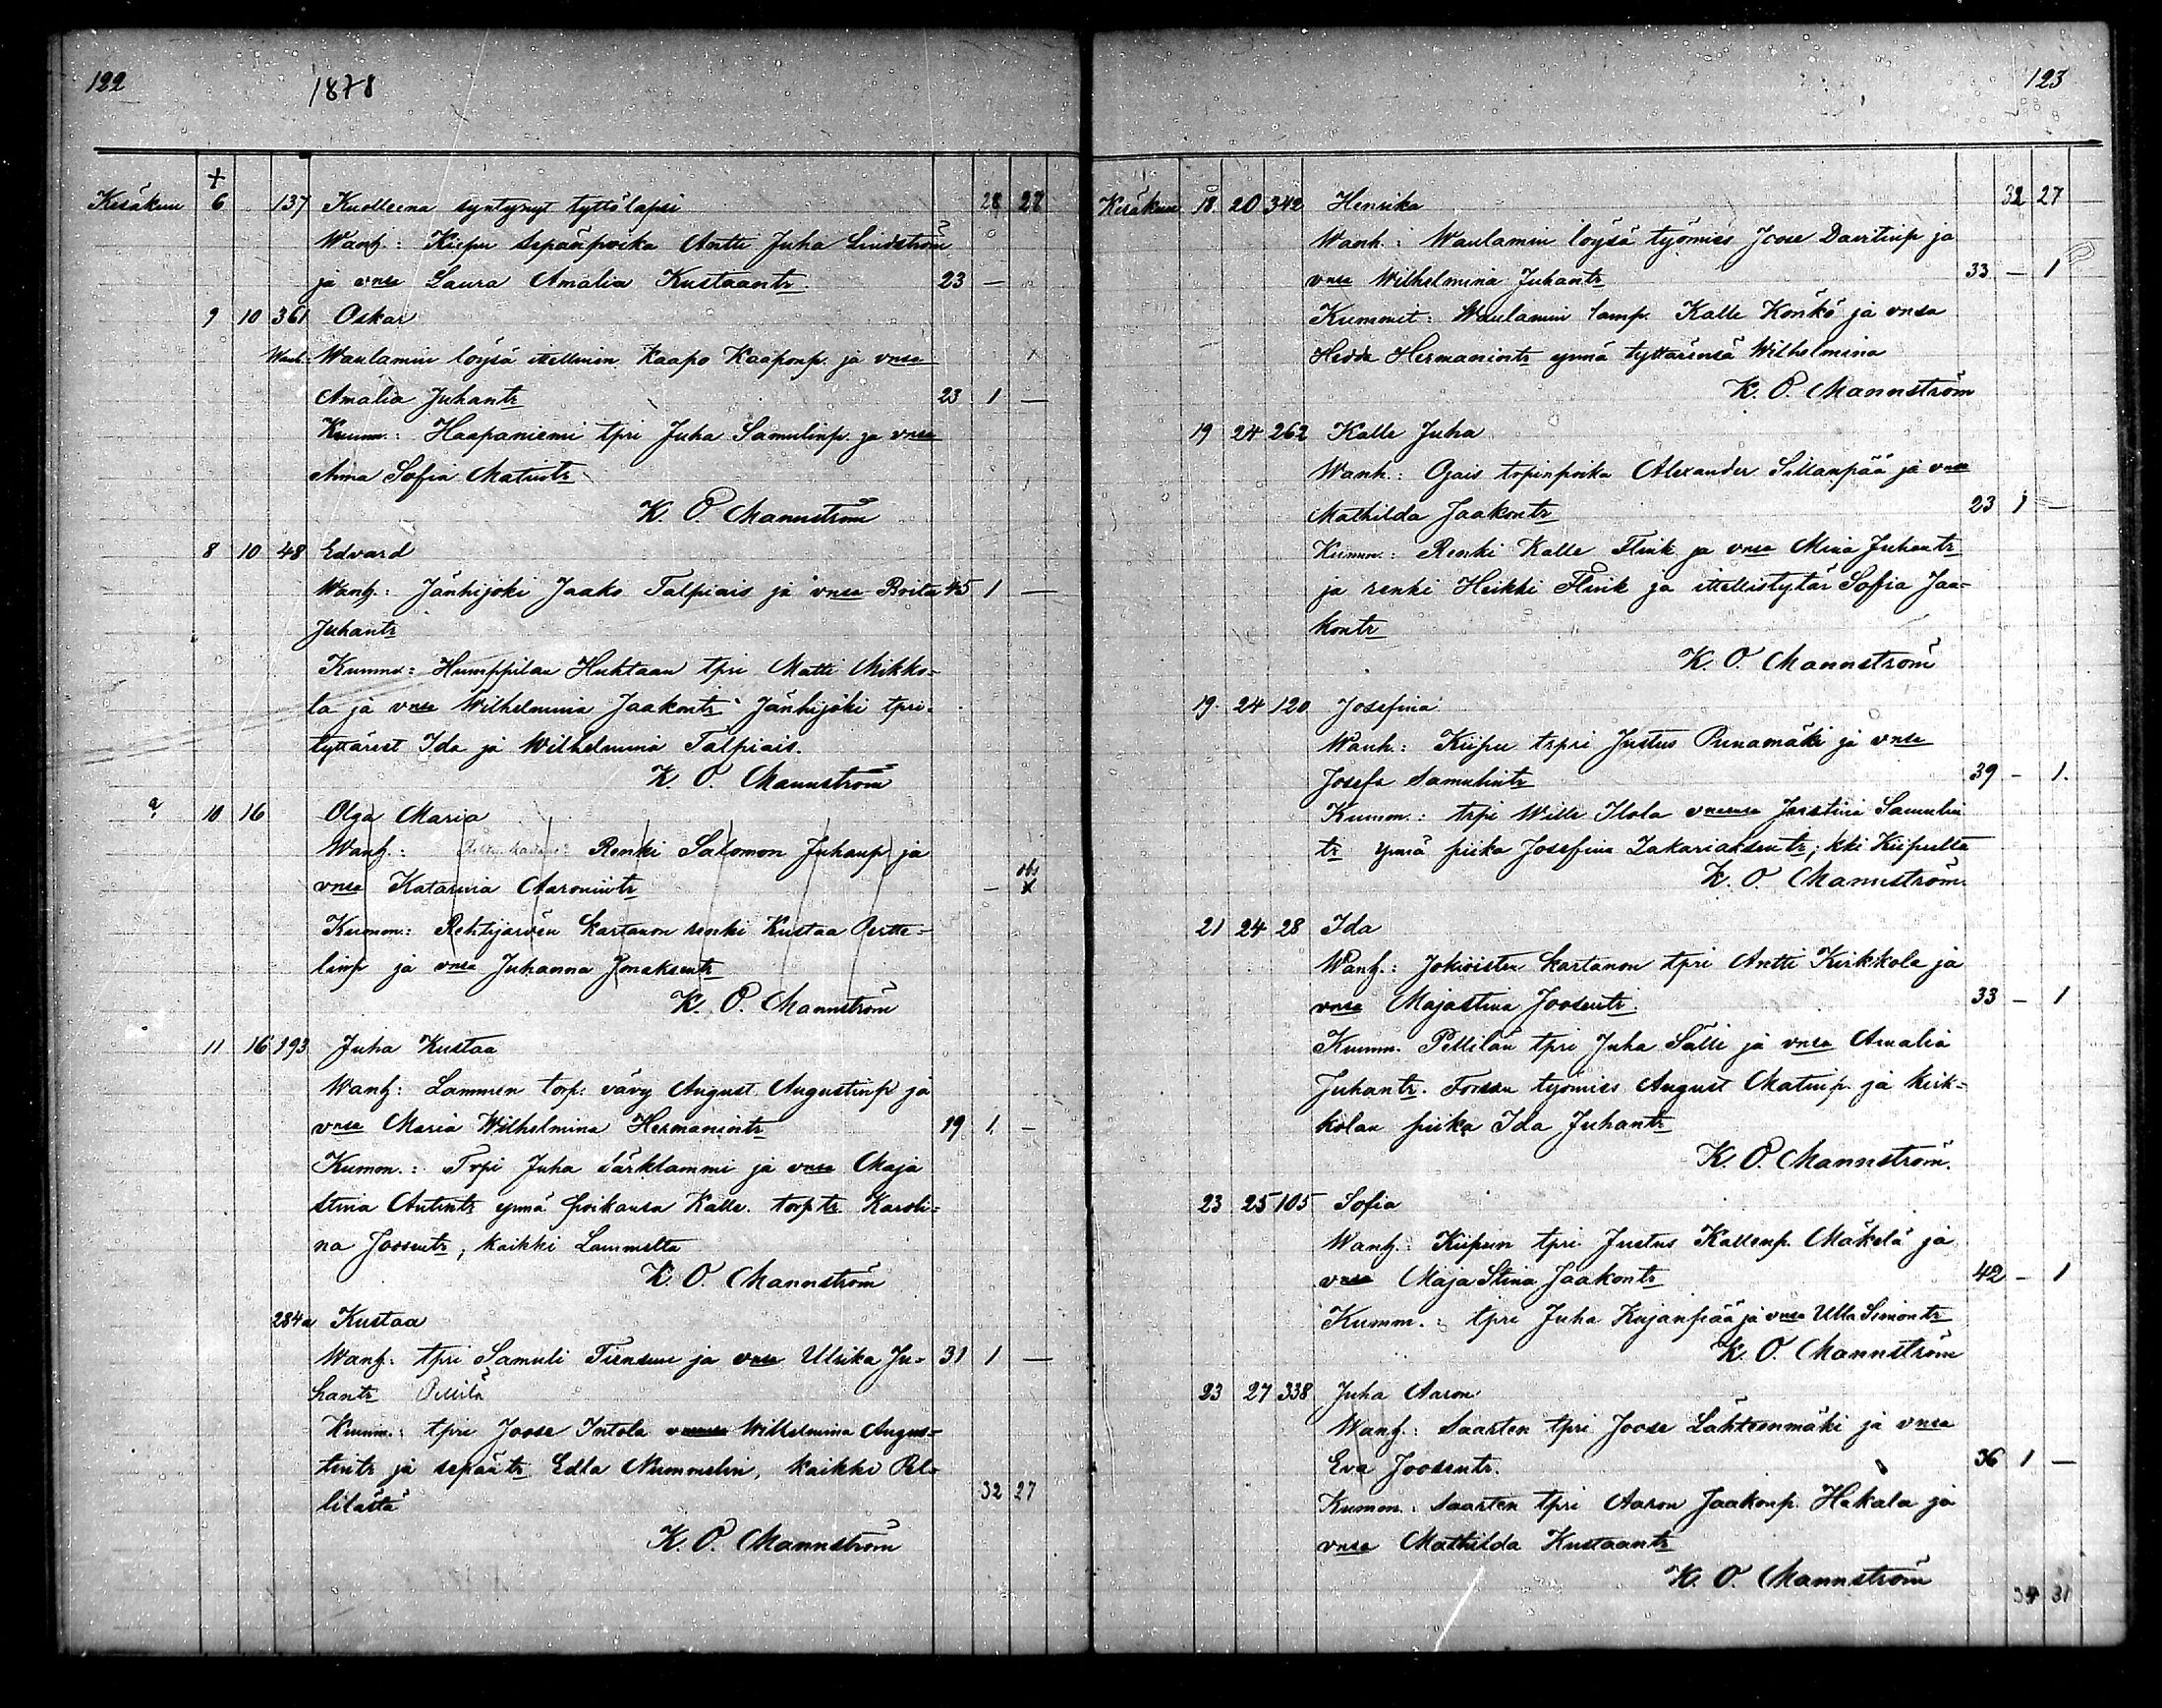 122
1878
+
Kesäkuu 6 137 Kuolleena syntynyt tyttölapsi 28 27
Wanh.: Kiipu sepänpoika Antti Juha Lindström
ja vnsa Laura Amalia Kustaantr. 23 —
9 10 361 Oskar
Wanh. Waulamin löysä itellinen Kaapo Kaaponp. ja vnsa
Amalia Juhantr 23 1 —
Kumm.: Haapaniemi tpri Juha Samulinp. ja vnsa
Anna Sofia Matintr
K. O. Mannström
8 10 48 Edvard
Wanh.: Jänhijoki Jaako Talpiais ja vnsa Brita 45 1 —
Juhantr
Kumm: Humppilan Huhtaan tpri Matti Mikko=
la ja vnsa Wilhelmina Jaakontr Jänhijoki tpri-
tyttärest Ida ja Wilhelmina Talpiais.
K. O. Mannström
10 16 Olga Maria
Wanh.: Renki Salomon Juhanp ja
vnsa Katarina Aaronintr — x
Kumm.: Rehtijärvën kartanon renki Kustaa Pertte=
linp ja vnsa Juhanna Jonaksentr
K. O. Mannström
11 16 193 Juha Kustaa
Wanh: Lammen torp. vävy August Augustinp ja
vnsa Maria Wilhelmina Hermanintr 19 1 —
Kumm.: Trpi Juha Särklammi ja vnsa Maja
Stina Antintr ynnä poikansa Kalle. torptr Karoli=
na Joosentr, kaikki Lammelta
K. O. Mannström
284a Kustaa
Wanh: tpri Samuli Tiensuu ja vnsa Ulrika Ju= 31 1 —
hantr Pellilä
Kumm.: tpri Joose Intola vnsa Wilhelmina Augus=
tintr ja sepäntr Edla Nummelin, kaikki Pel=
lilästä 32 27
K. O. Mannström
123
Kesäkuu 18 20 342 Henrika 32 27
Wanh.: Waulamin löysä työmies Joose Davitinp ja
vnsa Wilhelmina Juhantr 33 — 1
Kummit: Waulamin lamp. Kalle Könkö ja vnsa
Hedda Hermanintr ynnä tyttärensä Wilhelmina
K. O. Mannström
19 24 262 Kalle Juha
Wanh.: Ojais trpinpoika Alexander Sillanpää ja vnsa
Mathilda Jaakontr 23 1 —
Kumm.: Renki Kalle Flink ja vnsa Miina Juhantr
ja renki Heikki Flink ja itellistytär Sofia Jaa=
kontr
K. O. Mannström
19 24 120 Josefina
Wanh.: Kiipu trpri Justus Punamäki ja vnsa
Josefa Samulintr 39 — 1.
Kumm.: trpi Wille Ilola vnsa Justina Samulin
tr ynnä piika Josefina Zakariaksentr; kki Kiipulta
K. O. Mannström
21 24 28 Ida
Wanh.: Jokioisten kartanon tpri Antti Kirkkola ja
vnsa Majastina Joosentr. 33 — 1
Kumm. Pellilän tpri Juha Sälli ja vnsa Amalia
Juhantr. Forssan työmies August Matinp. ja Kirk=
kolan piika Ida Juhantr
K. O. Mannström.
23 25 105 Sofia
Wanh.: Kiipun tpri Justus Kallenp. Mäkelä ja
vnsa Maja Stina Jaakontr 42 — 1
Kumm.: tpri Juha Kujanpää ja vnsa Ulla Simontr
K. O. Mannström
23 27 338 Juha Aaron
Wanh.: Saarten tpri Joose Lähteenmäki ja vnsa
Eva Joosentr. 36 1 —
Kumm.: Saarten tpri Aaron Jaakonp. Hakala ja
vnsa Mathilda Kustaantr
K. O. Mannström
34 31